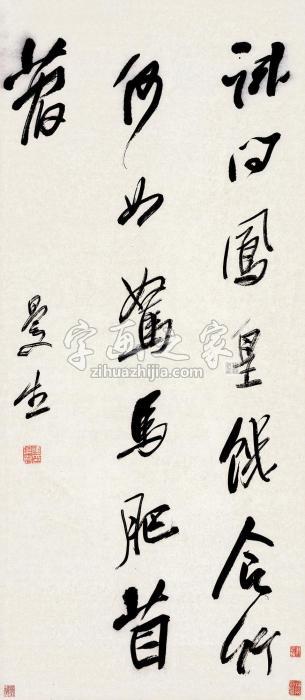 試问鳳皇饑食竹
何如駑馬肥苜
蓿
曼生
字画之家
zihuazhijia.com